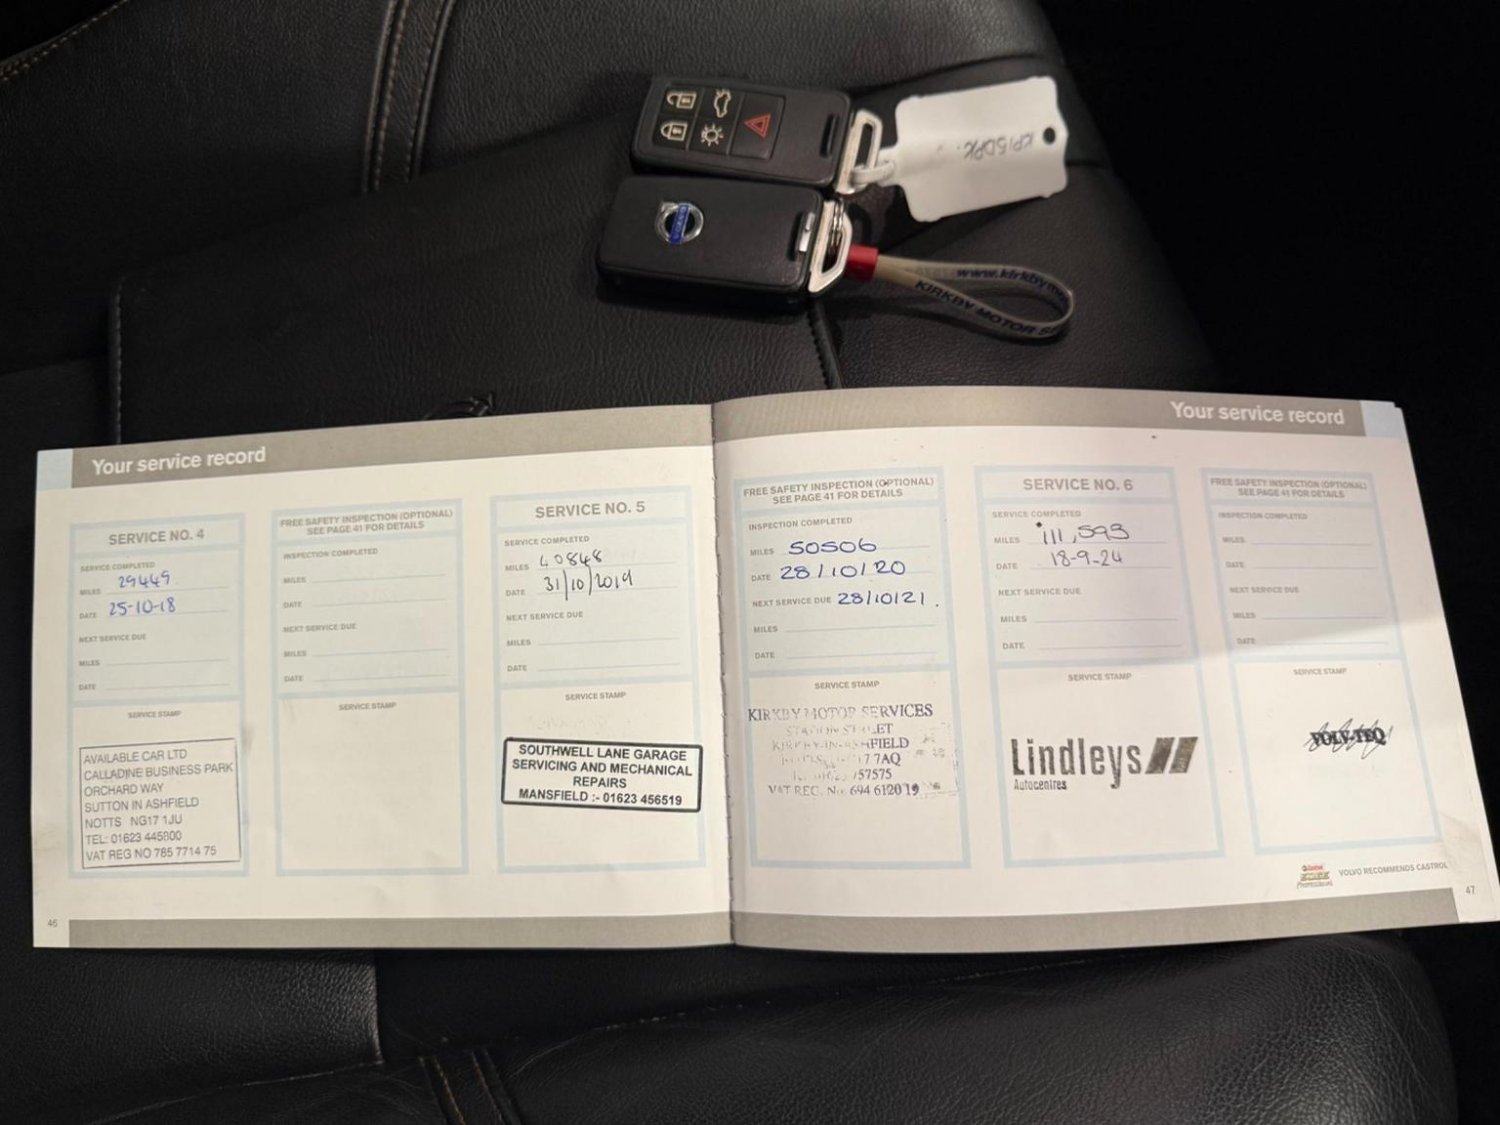 KP15DPK.
VOLVO
www.kirkbym
KIRKBY MOTOR SE
Your service record
SERVICE NO. 4
SERVICE COMPLETED
MILES 29449
DATE 25-10-18
NEXT SERVICE DUE
MILES
DATE
SERVICE STAMP
AVAILABLE CAR LTD
CALLADINE BUSINESS PARK
ORCHARD WAY
SUTTON IN ASHFIELD
NOTTS NG17 1JU
TEL: 01623 445800
VAT REG NO 785 7714 75
46
FREE SAFETY INSPECTION (OPTIONAL)
SEE PAGE 41 FOR DETAILS
INSPECTION COMPLETED
MILES
DATE
NEXT SERVICE DUE
MILES
DATE
SERVICE STAMP
SERVICE NO. 5
SERVICE COMPLETED
MILES 40848
DATE 31/10/2019
NEXT SERVICE DUE
MILES
DATE
SERVICE STAMP
SOUTHWELL LANE GARAGE
SERVICING AND MECHANICAL
REPAIRS
MANSFIELD :- 01623 456519
Your service record
FREE SAFETY INSPECTION (OPTIONAL)
SEE PAGE 41 FOR DETAILS
INSPECTION COMPLETED
MILES 50506
DATE 28/10/20
NEXT SERVICE DUE 28/10/21.
MILES
DATE
SERVICE STAMP
KIRKBY MOTOR SERVICES
STATION STREET
KIRKBY-IN-ASHFIELD
7AQ
57575
VAT REG. No. 694 6120 19
SERVICE NO. 6
SERVICE COMPLETED
MILES 111,593
DATE 18-9-24
NEXT SERVICE DUE
MILES
DATE
SERVICE STAMP
Lindleys
Autocentres
FREE SAFETY INSPECTION (OPTIONAL)
SEE PAGE 41 FOR DETAILS
INSPECTION COMPLETED
MILES
DATE
NEXT SERVICE DUE
MILES
DATE
SERVICE STAMP
VOLV-TEQ
Castrol
EDGE
Professional
VOLVO RECOMMENDS CASTROL
47